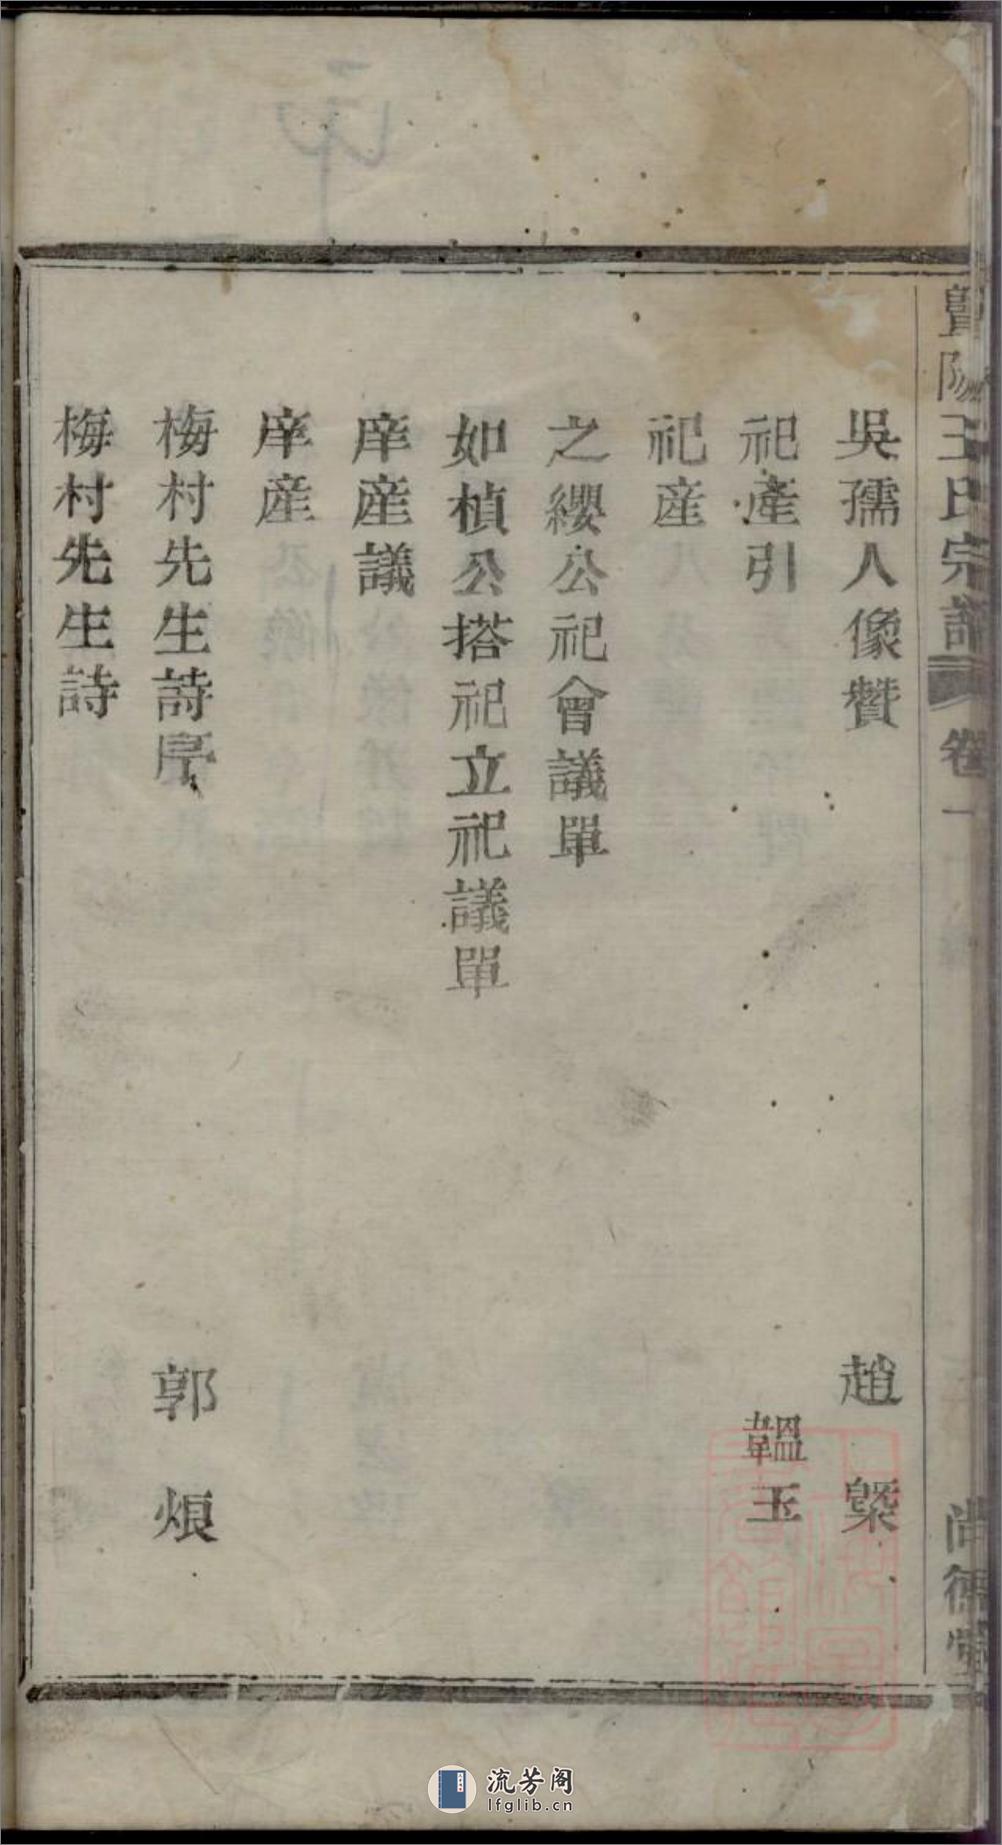 暨陽王氏宗譜 卷一 尚德堂
吳孺人像贊 趙 槩
祀產引 韞玉
祀産
之纓公祀會議單
如楨公搭祀立祀議單
庠産議
庠産
梅村先生詩序 郭 煩
梅村先生詩
流芳阁
lfglib.cn